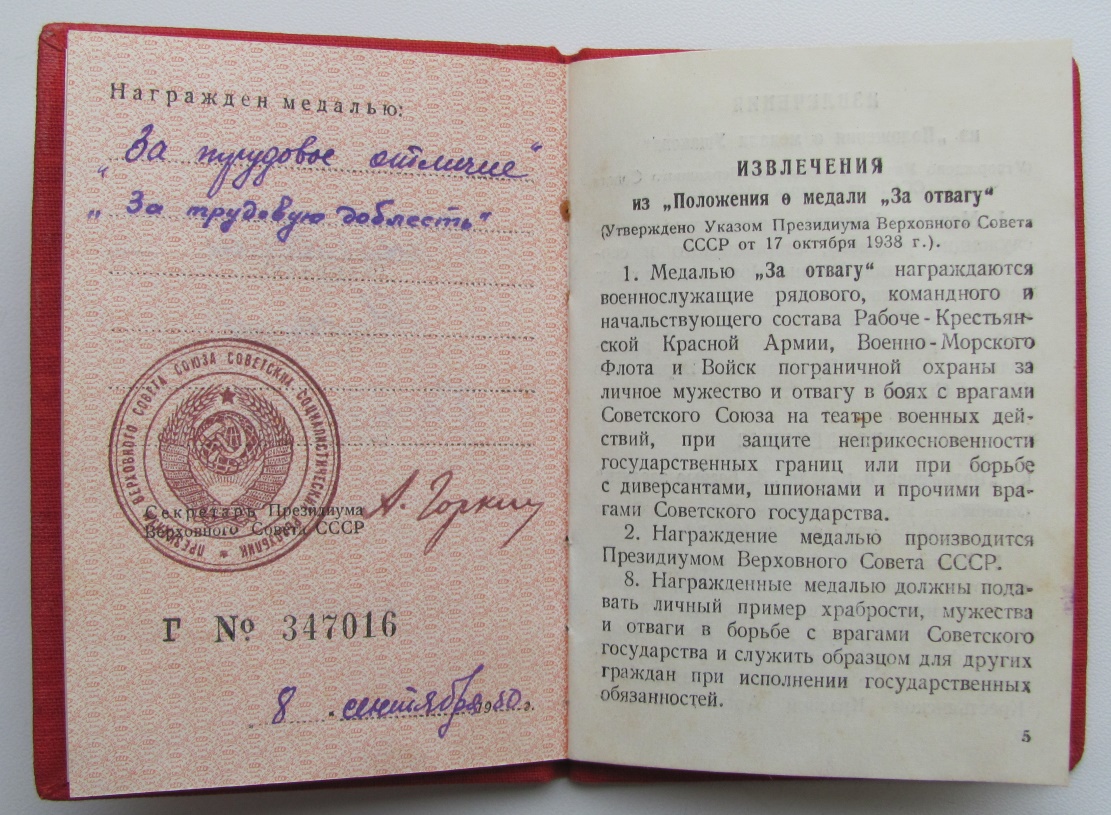 Награжден медалью:
„За трудовое отличие“
„За трудовую доблесть“
ПРЕЗИДИУМ ВЕРХОВНОГО СОВЕТА СОЮЗА СОВЕТСКИХ СОЦИАЛИСТИЧЕСКИХ РЕСПУБЛИК
Секретарь Президиума
Верховного Совета СССР
А. Горкин
Г № 347016
8 „ сентября 1950 г.
ИЗВЛЕЧЕНИЯ
из „Положения о медали „За отвагу“
(Утверждено Указом Президиума Верховного Совета
СССР от 17 октября 1938 г.).
1. Медалью „За отвагу“ награждаются
военнослужащие рядового, командного и
начальствующего состава Рабоче-Крестьян-
ской Красной Армии, Военно-Морского
Флота и Войск пограничной охраны за
личное мужество и отвагу в боях с врагами
Советского Союза на театре военных дей-
ствий, при защите неприкосновенности
государственных границ или при борьбе
с диверсантами, шпионами и прочими вра-
гами Советского государства.
2. Награждение медалью производится
Президиумом Верховного Совета СССР.
8. Награжденные медалью должны пода-
вать личный пример храбрости, мужества
и отваги в борьбе с врагами Советского
государства и служить образцом для других
граждан при исполнении государственных
обязанностей.
5